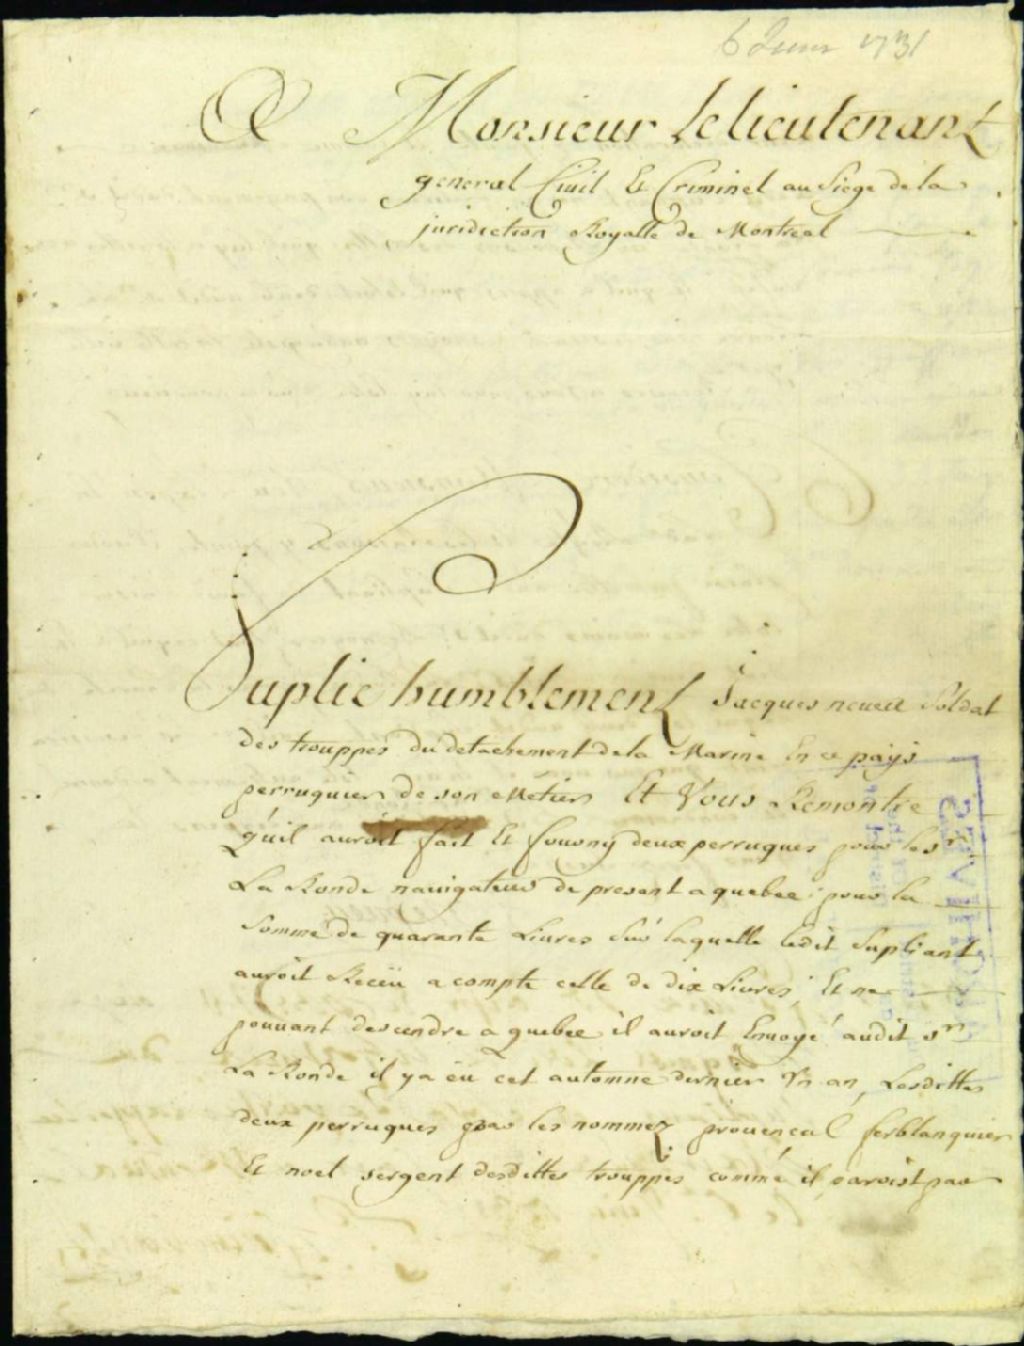 6 Juin 1731
A Monsieur le lieutenant
general Civil Et Criminel au Siege de la
juridiction Royalle de Montreal
Suplie humblement Jacques neveu Soldat
des trouppes du detachement de la Marine En ce pays
perruquier de son Métier Et Vous Remontre
qu'il auroit fait Et fourny deux perruques pour le Sr
La Ronde navigateur de present a quebec pour la
Somme de quarante Livres Sur laquelle ledit Supliant
auroit Receü a compte celle de dix Livres, Et ne
pouvant descendre a quebec il auroit Envoyé audit Sr
La Ronde il y a eu cet automne dernier Un an, Lesdittes
deux perruques par les nommez provençal ferblanquier
Et noel sergent desdittes trouppes comme il paroist par
ARCHIVES